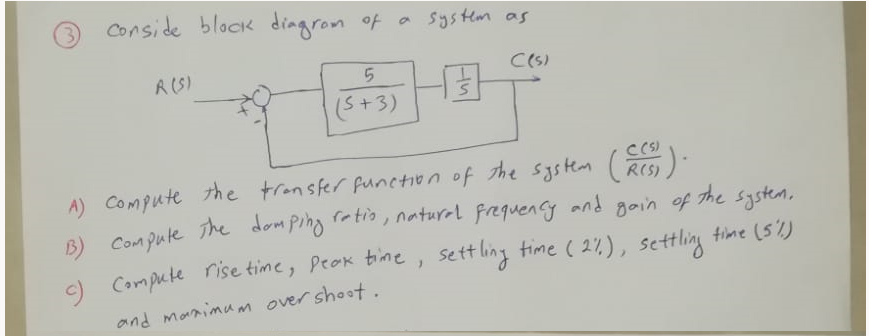 ③ Conside block diagram of a system as
R(S)
+
-
5
(S+3)
1
S
C(S)
A) Compute the transfer function of the system (C(S)/R(S)).
B) Compute The damping ratio, natural frequency and gain of the system.
C) Compute rise time, Peak time, settling time (2%), settling time (5%)
and maximum over shoot.